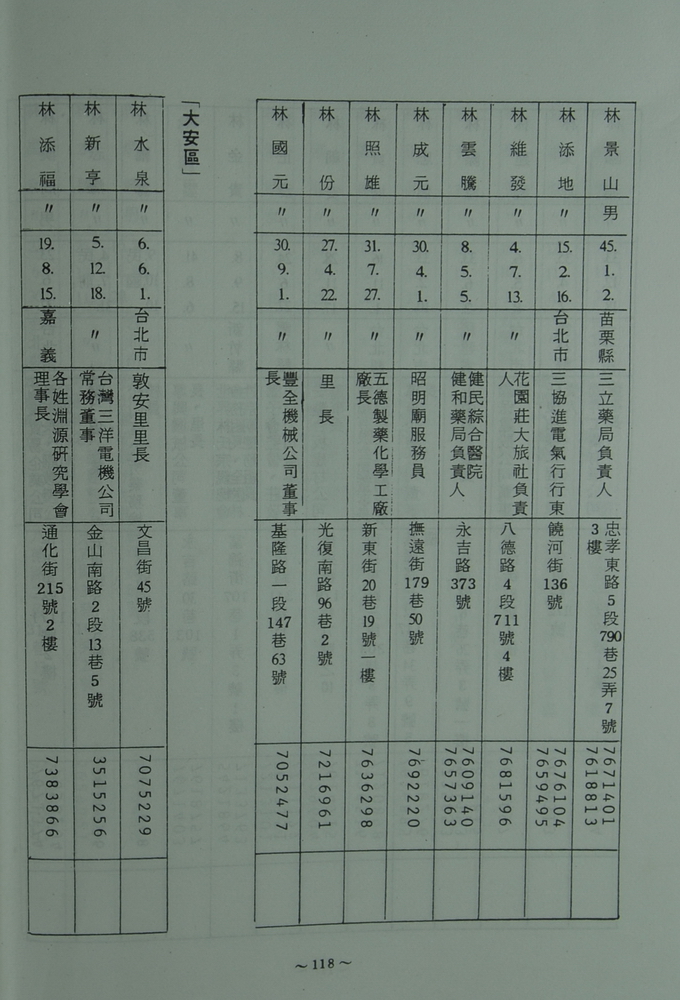 林景山 男 45. 1. 2. 苗栗縣 三立藥局負責人 忠孝東路5段790巷25弄7號3樓 7671401 7618813
林添地 〃 15. 2. 16. 台北市 三協進電氣行行東 饒河街136號 7676104 7659495
林維發 〃 4. 7. 13. 〃 花園莊大旅社負責人 八德路4段711號4樓 7681596
林雲騰 〃 8. 5. 5. 〃 健民綜合醫院健和藥局負責人 永吉路373號 7609140 7657363
林成元 〃 30. 4. 1. 〃 昭明廟服務員 撫遠街179巷50號 7692220
林照雄 〃 31. 7. 27. 〃 五德製藥化學工廠廠長 新東街20巷19號一樓 7636298
林份 〃 27. 4. 22. 〃 里長 光復南路96巷2號 7216961
林國元 〃 30. 9. 1. 〃 豐全機械公司董事長 基隆路一段147巷63號 7052477
「大安區」
林水泉 〃 6. 6. 1. 台北市 敦安里里長 文昌街45號 7075229
林新亨 〃 5. 12. 18. 〃 台灣三洋電機公司常務董事 金山南路2段13巷5號 3515256
林添福 〃 19. 8. 15. 嘉義 各姓淵源研究學會理事長 通化街215號2樓 7383866
～118～